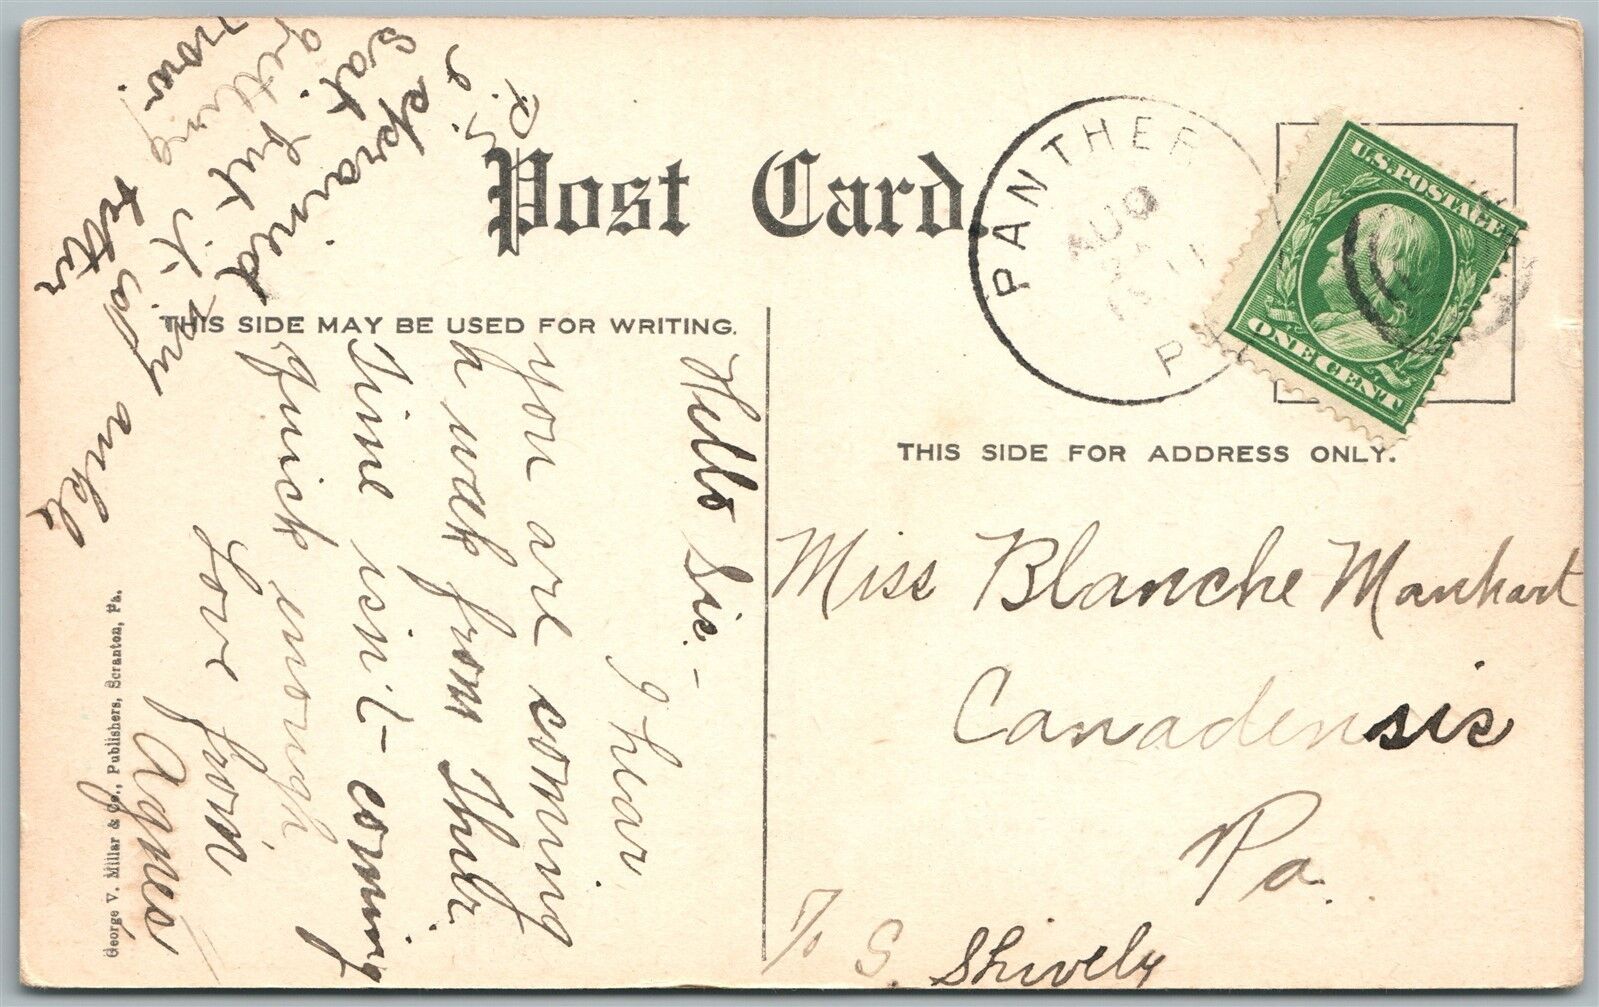 Post Card.
THIS SIDE MAY BE USED FOR WRITING.
Hello Sis. –
I hear
you are coming
a weak from Thur.
Time isin't – coming
quick enough
Love from
Agnes
P.S.
I sprained my ankle
Sat but it
getting better
now.
George V. Millar & Co., Publishers, Scranton, Pa.
PANTHER
AUG
PA
U.S. POSTAGE
ONE CENT
THIS SIDE FOR ADDRESS ONLY.
Miss Blanche Manhart
Canadensis
Pa.
℅ S. Shively